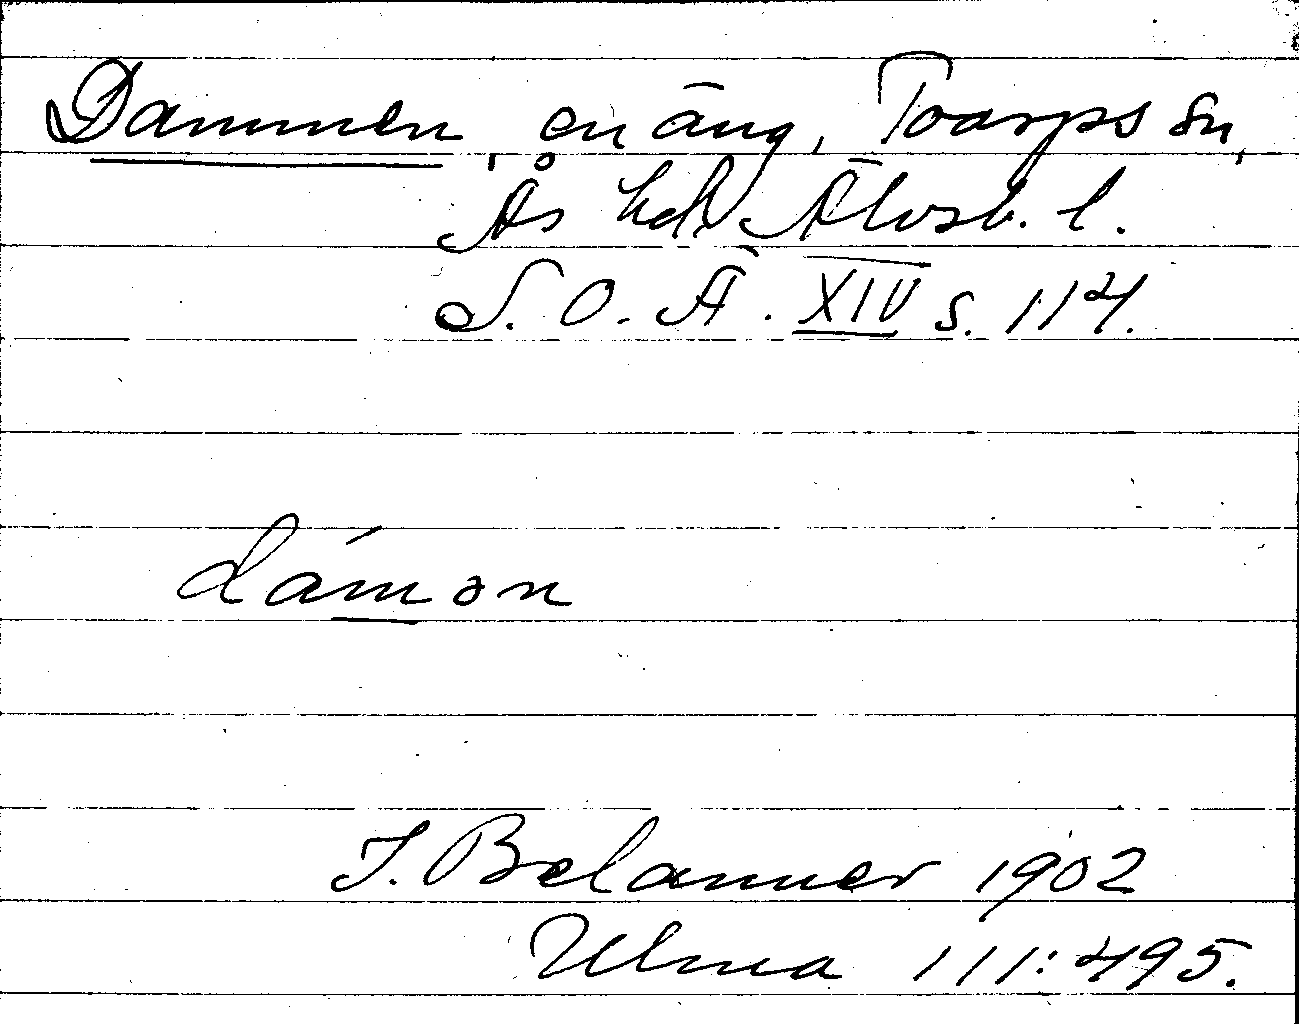 Dammen, en äng, Toarps sn,
Ås hd Älvsb. l.
S. O. Ä. XIV s. 114.
dámən
J. Belanner 1902
Ulma 111:495.